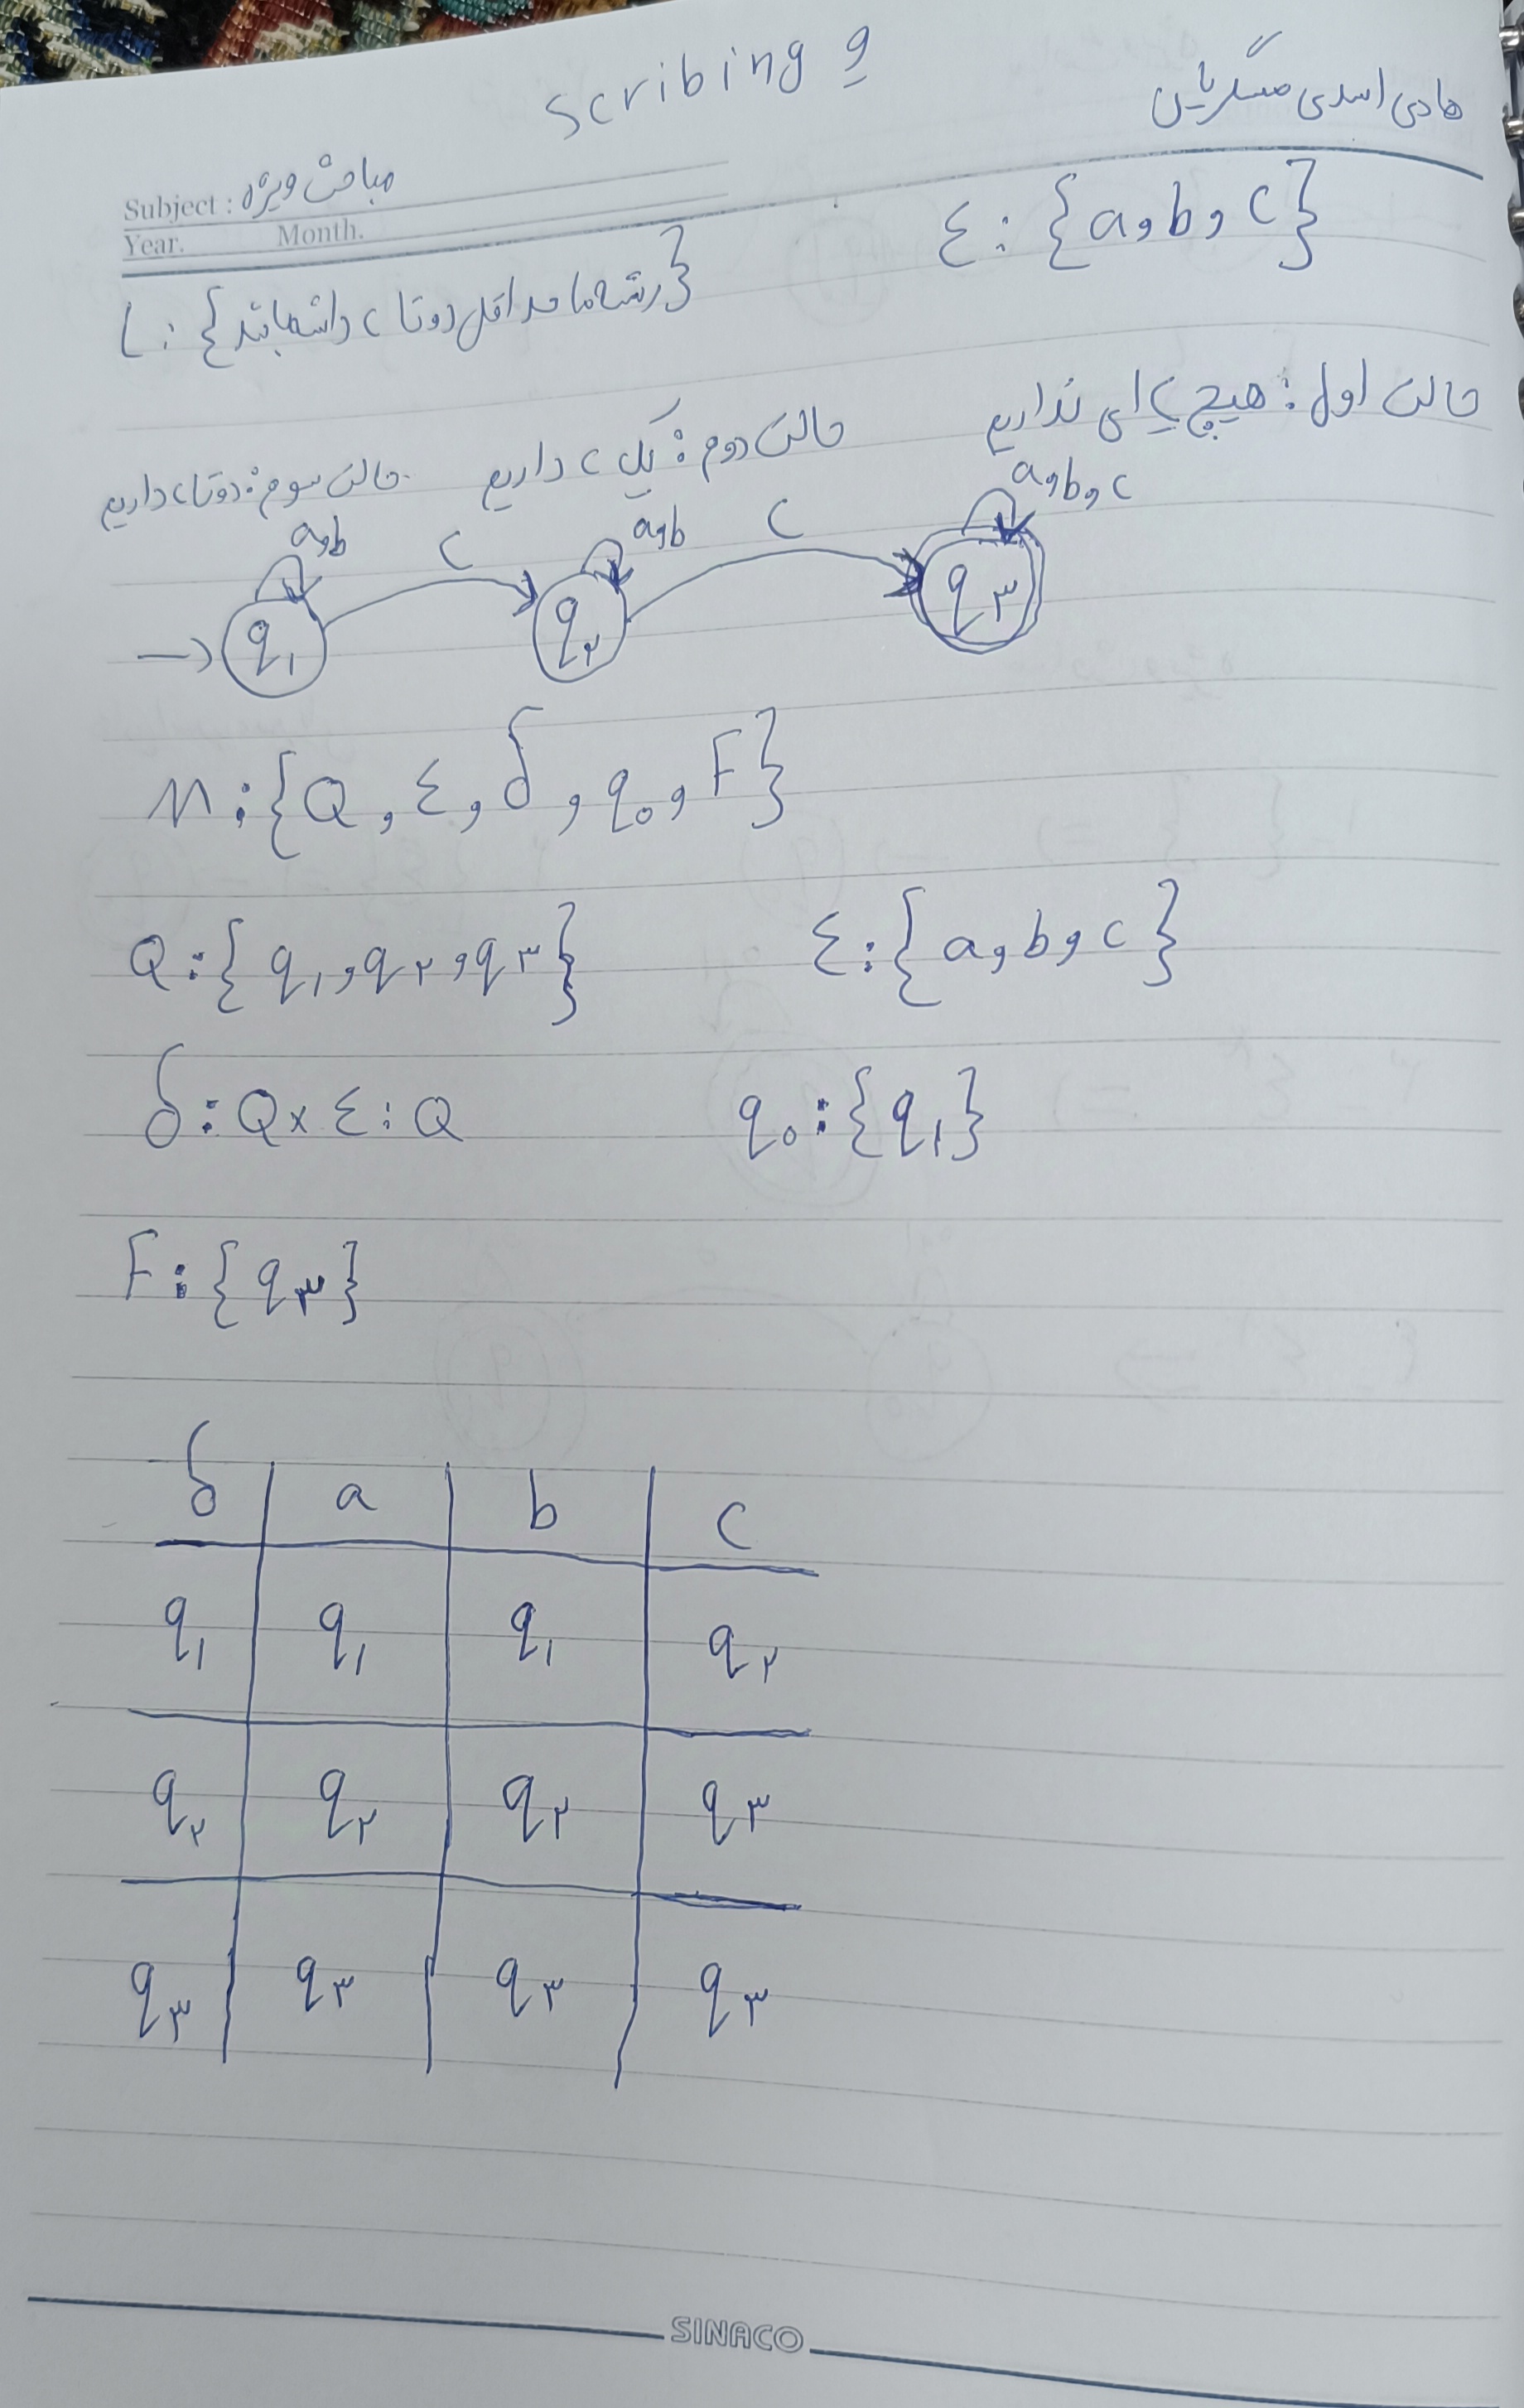 scribing و
هادی اسدی
Subject : مباحث ویژه
Year. Month.
Σ : {a, b, c}
L : {رشته ها حداقل دوتا c داشته باشند}
حالت اول : هیچ c ای نداریم
حالت دوم : یک c داریم
حالت سوم : دوتا c داریم
a,b c a,b c a,b,c
q۱ q۲ q۳
M : {Q, Σ, δ, q۰, F}
Q : {q۱, q۲, q۳} Σ : {a, b, c}
δ : Q × Σ : Q q۰ : {q۱}
F : {q۳}
δ a b c
q۱ q۱ q۱ q۲
q۲ q۲ q۲ q۳
q۳ q۳ q۳ q۳
SINACO